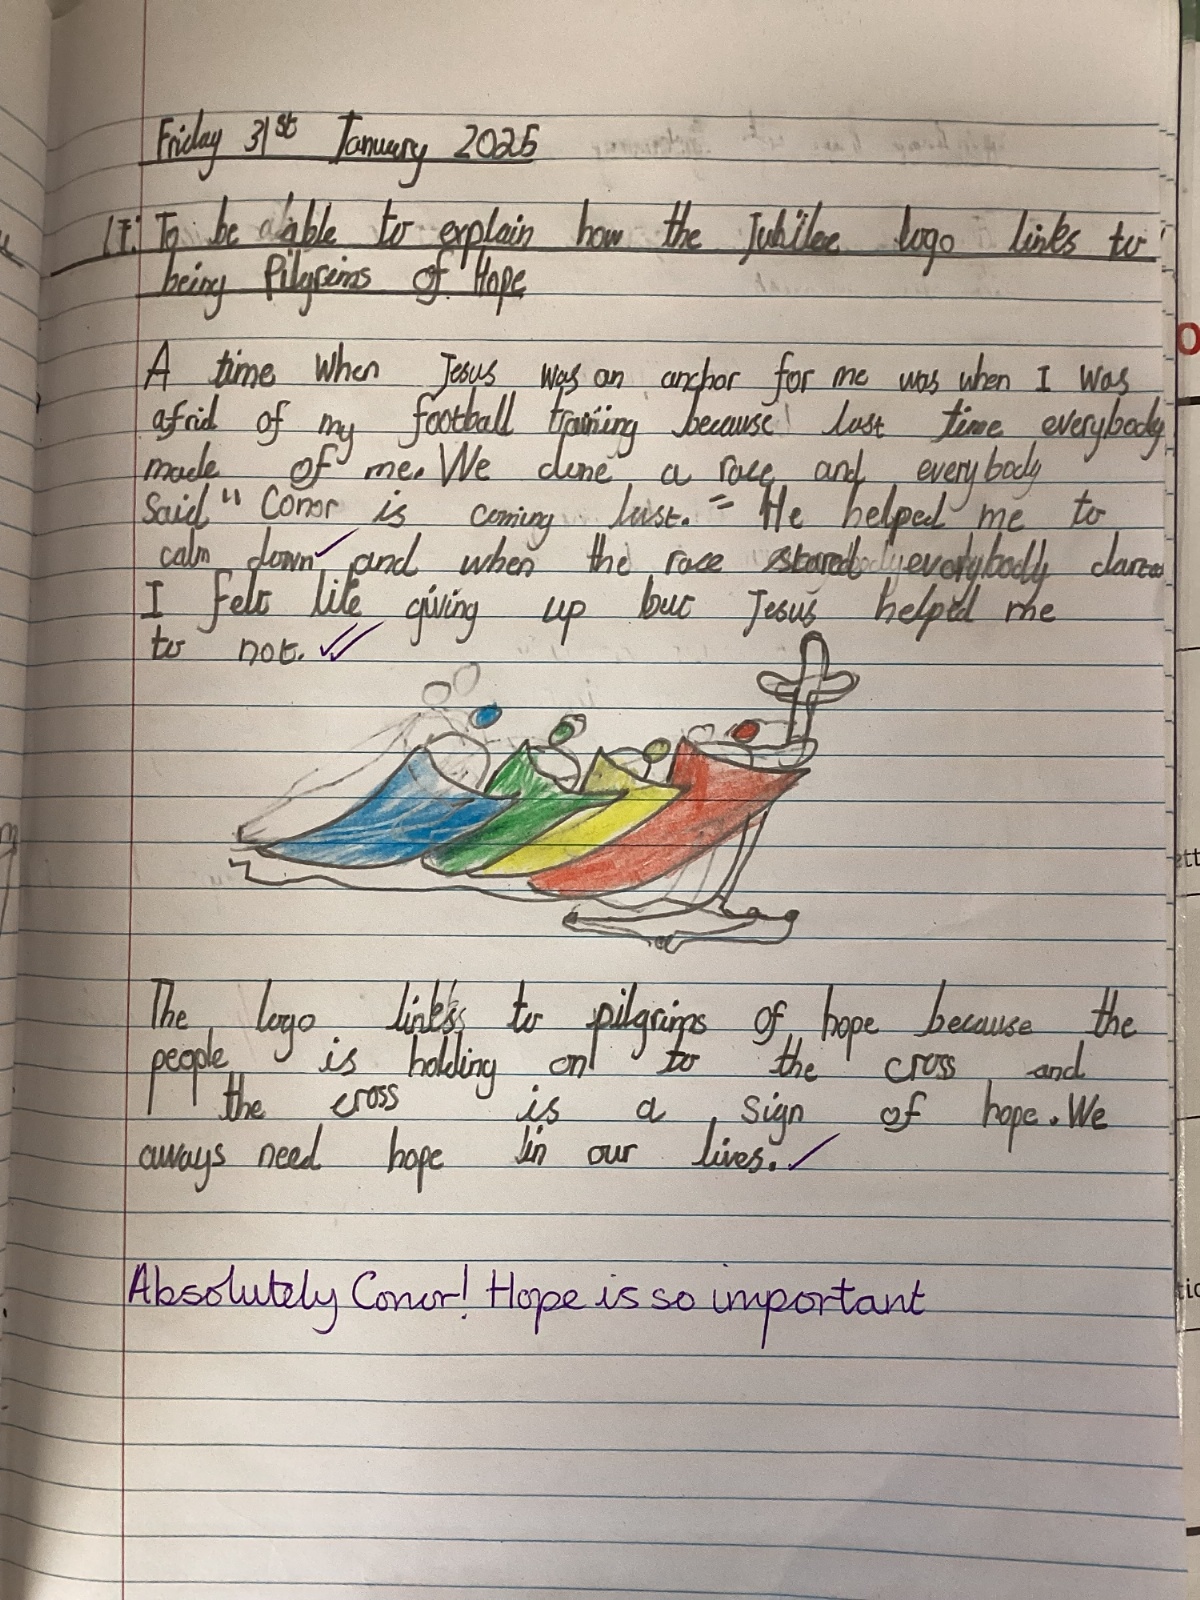 Friday 31st January 2025
LI: To be able to explain how the Jubilee logo links to
being Pilgrims of Hope
A time when Jesus was an anchor for me was when I was
afrid of my football training because last time everybody
made of me. We done a race and everybody
said " Conor is coming last. " He helped me to
calm down and when the race stared everybody
I felt like giving up but Jesus helped me
to not.
The logo links to pilgrims of hope because the
people is holding on to the cross and
the cross is a sign of hope. We
always need hope in our lives.
Absolutely Conor! Hope is so important